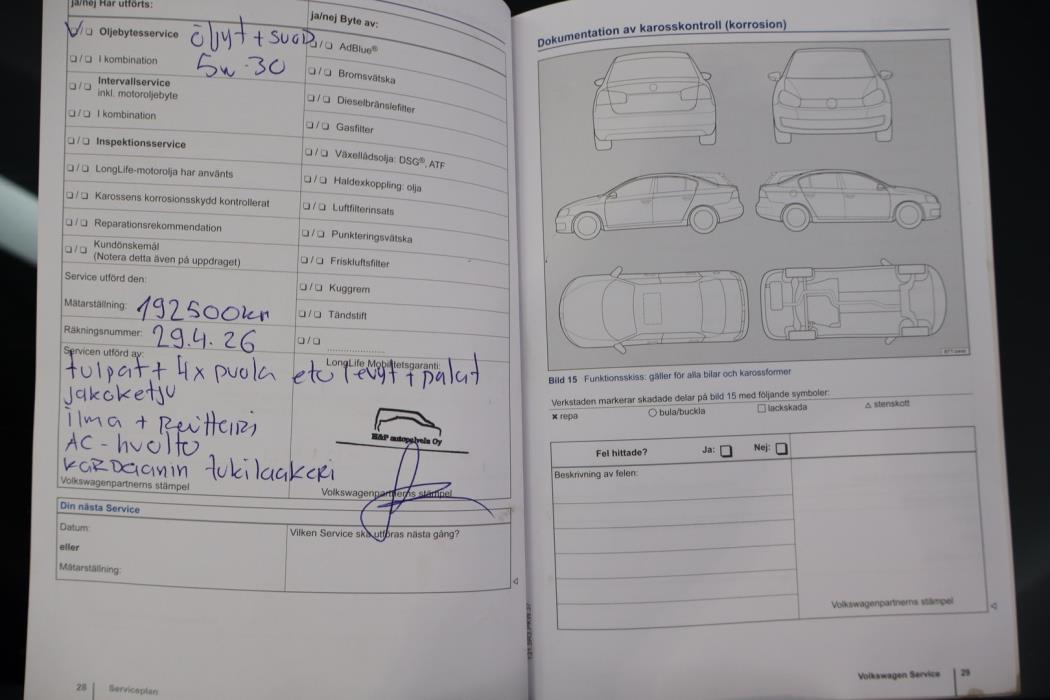 ja/nej Har utförts:
ja/nej Byte av:
V/❑ Oljebytesservice öljyt + suod
5w-30
❑/❑ I kombination
❑/❑ Intervallservice
inkl. motoroljebyte
❑/❑ I kombination
❑/❑ Inspektionsservice
❑/❑ LongLife-motorolja har använts
❑/❑ Karossens korrosionsskydd kontrollerat
❑/❑ Reparationsrekommendation
❑/❑ Kundönskemål
(Notera detta även på uppdraget)
❑/❑ AdBlue®
❑/❑ Bromsvätska
❑/❑ Dieselbränslefilter
❑/❑ Gasfilter
❑/❑ Växellådsolja: DSG®, ATF
❑/❑ Haldexkoppling: olja
❑/❑ Luftfilterinsats
❑/❑ Punkteringsvätska
❑/❑ Friskluftsfilter
❑/❑ Kuggrem
❑/❑ Tändstift
❑/❑ ....................
Service utförd den:
Mätarställning: 192500km
Räkningsnummer: 29.4.26
Servicen utförd av:
LongLife Mobilitetsgaranti:
tulpat + 4x puola etu levyt + palat
jakoketju
ilma + Reittari
AC-huolto
Kardaanin tukilaakeri
H&P autopalvelu Oy
Volkswagenpartnerns stämpel
Volkswagenpartnerns stämpel
Din nästa Service
Datum:
eller
Mätarställning:
Vilken Service ska utföras nästa gång?
28 Serviceplan
Dokumentation av karosskontroll (korrosion)
Bild 15 Funktionsskiss: gäller för alla bilar och karossformer
Verkstaden markerar skadade delar på bild 15 med följande symboler:
✖ repa ○ bula/buckla ❑ lackskada △ stenskott
Fel hittade? Ja: ❑ Nej: ❑
Beskrivning av felen:
Volkswagenpartnerns stämpel
Volkswagen Service 29